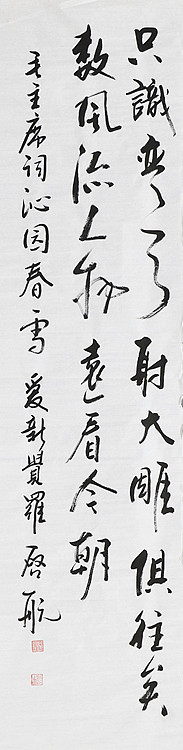 只識彎弓射大雕俱往矣
數風流人物還看今朝
毛主席詞沁园春雪 愛新覺羅啓航